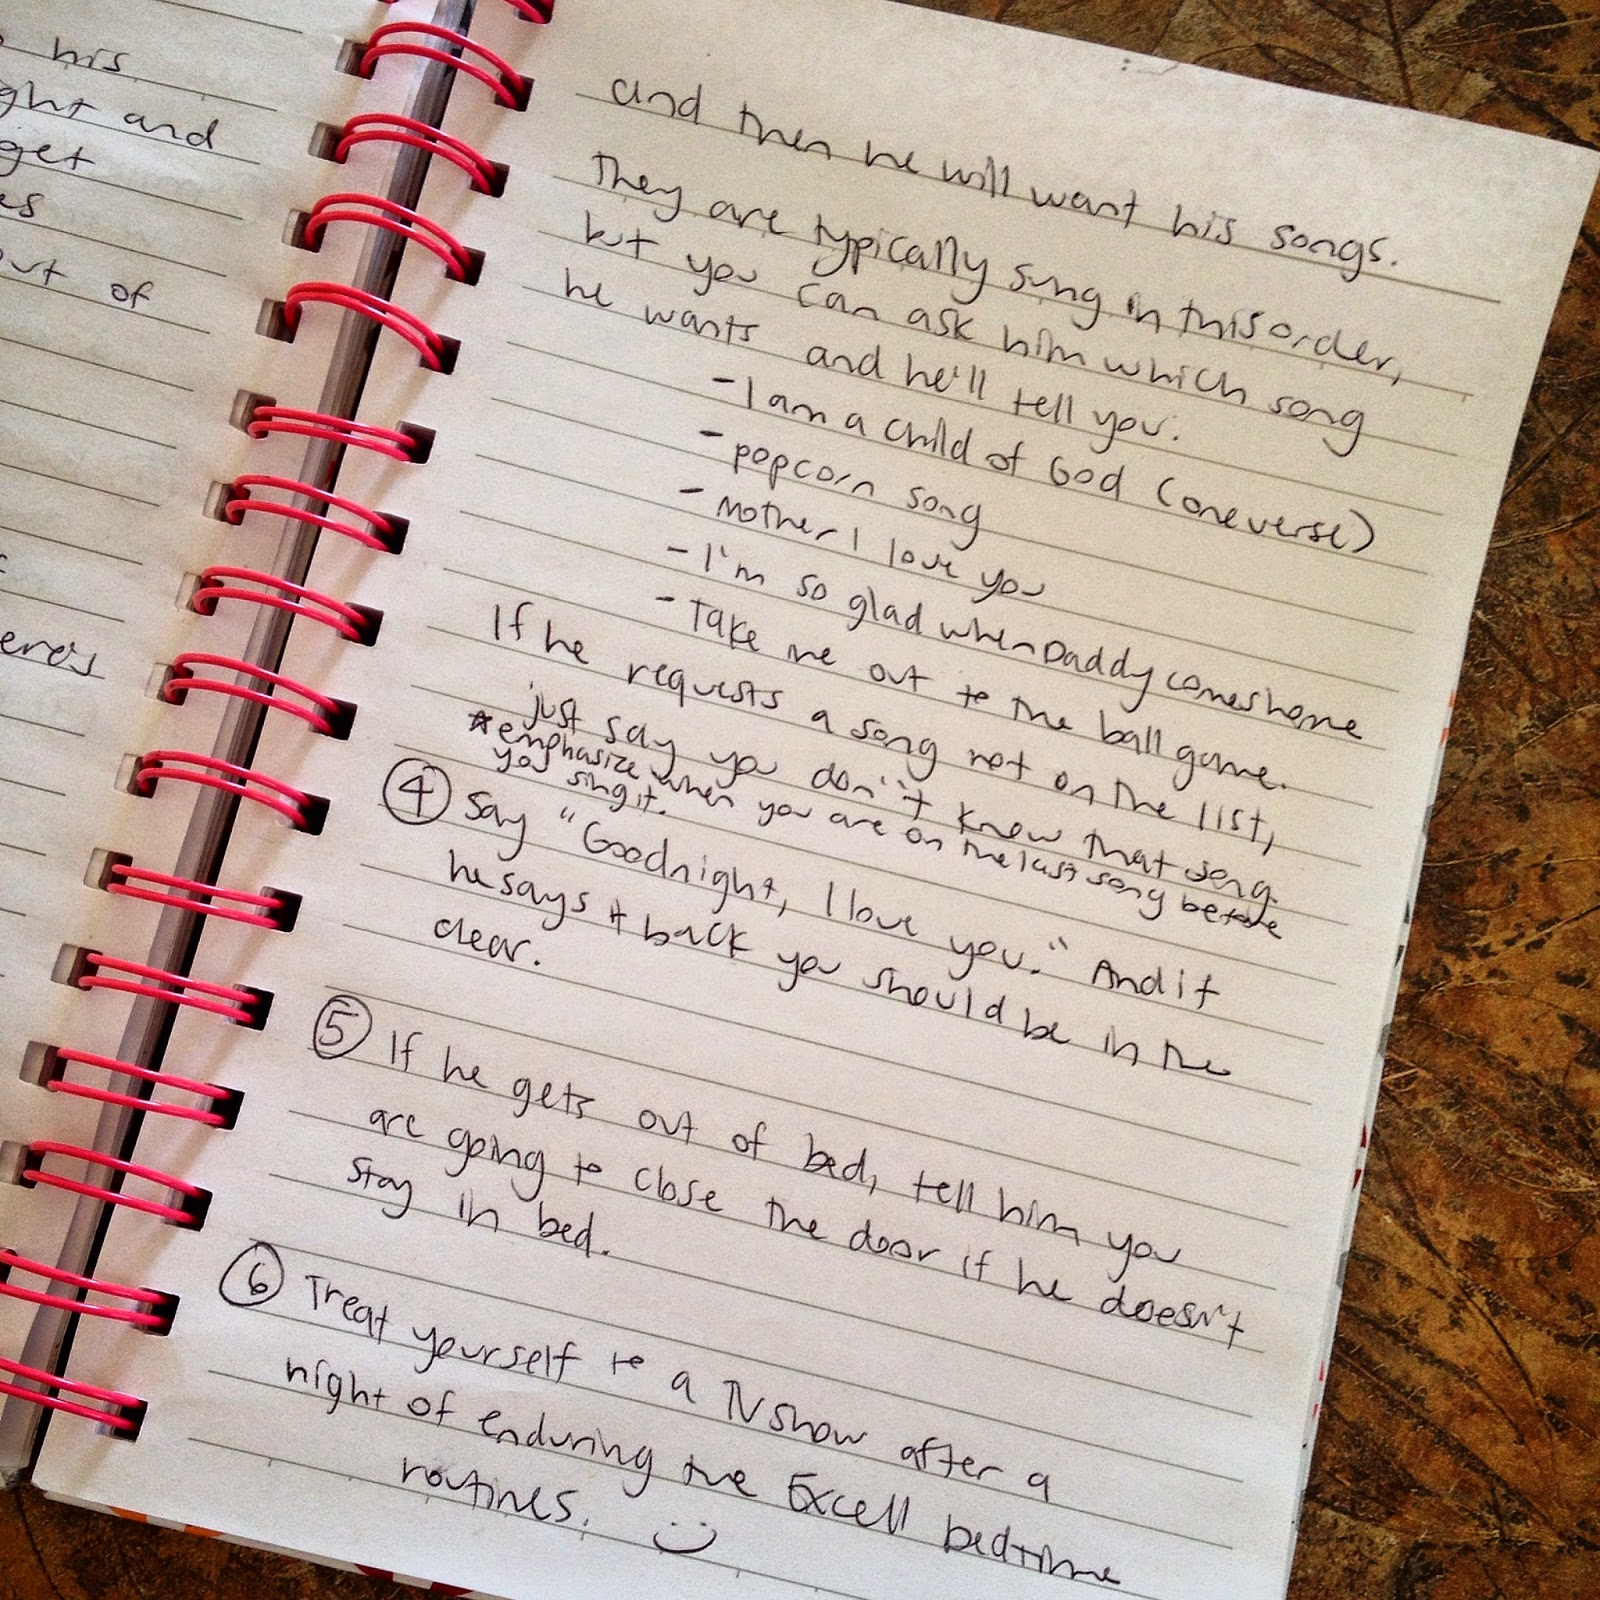 his
and
get
out of
and then he will want his songs.
They are typically sung in this order,
but you can ask him which song
he wants and he'll tell you.
- I am a Child of God (one verse)
- popcorn song
- Mother I love you
- I'm so glad when Daddy comes home
- Take me out to the ball game.
If he requests a song not on the list,
just say you don't know that song.
*emphasize when you are on the last song before
you sing it.
④ Say "Goodnight, I love you." And if
he says it back you should be in the
clear.
⑤ If he gets out of bed, tell him you
are going to close the door if he doesn't
stay in bed.
⑥ Treat yourself to a TV show after a
night of enduring the Excell bedtime
routines. :)